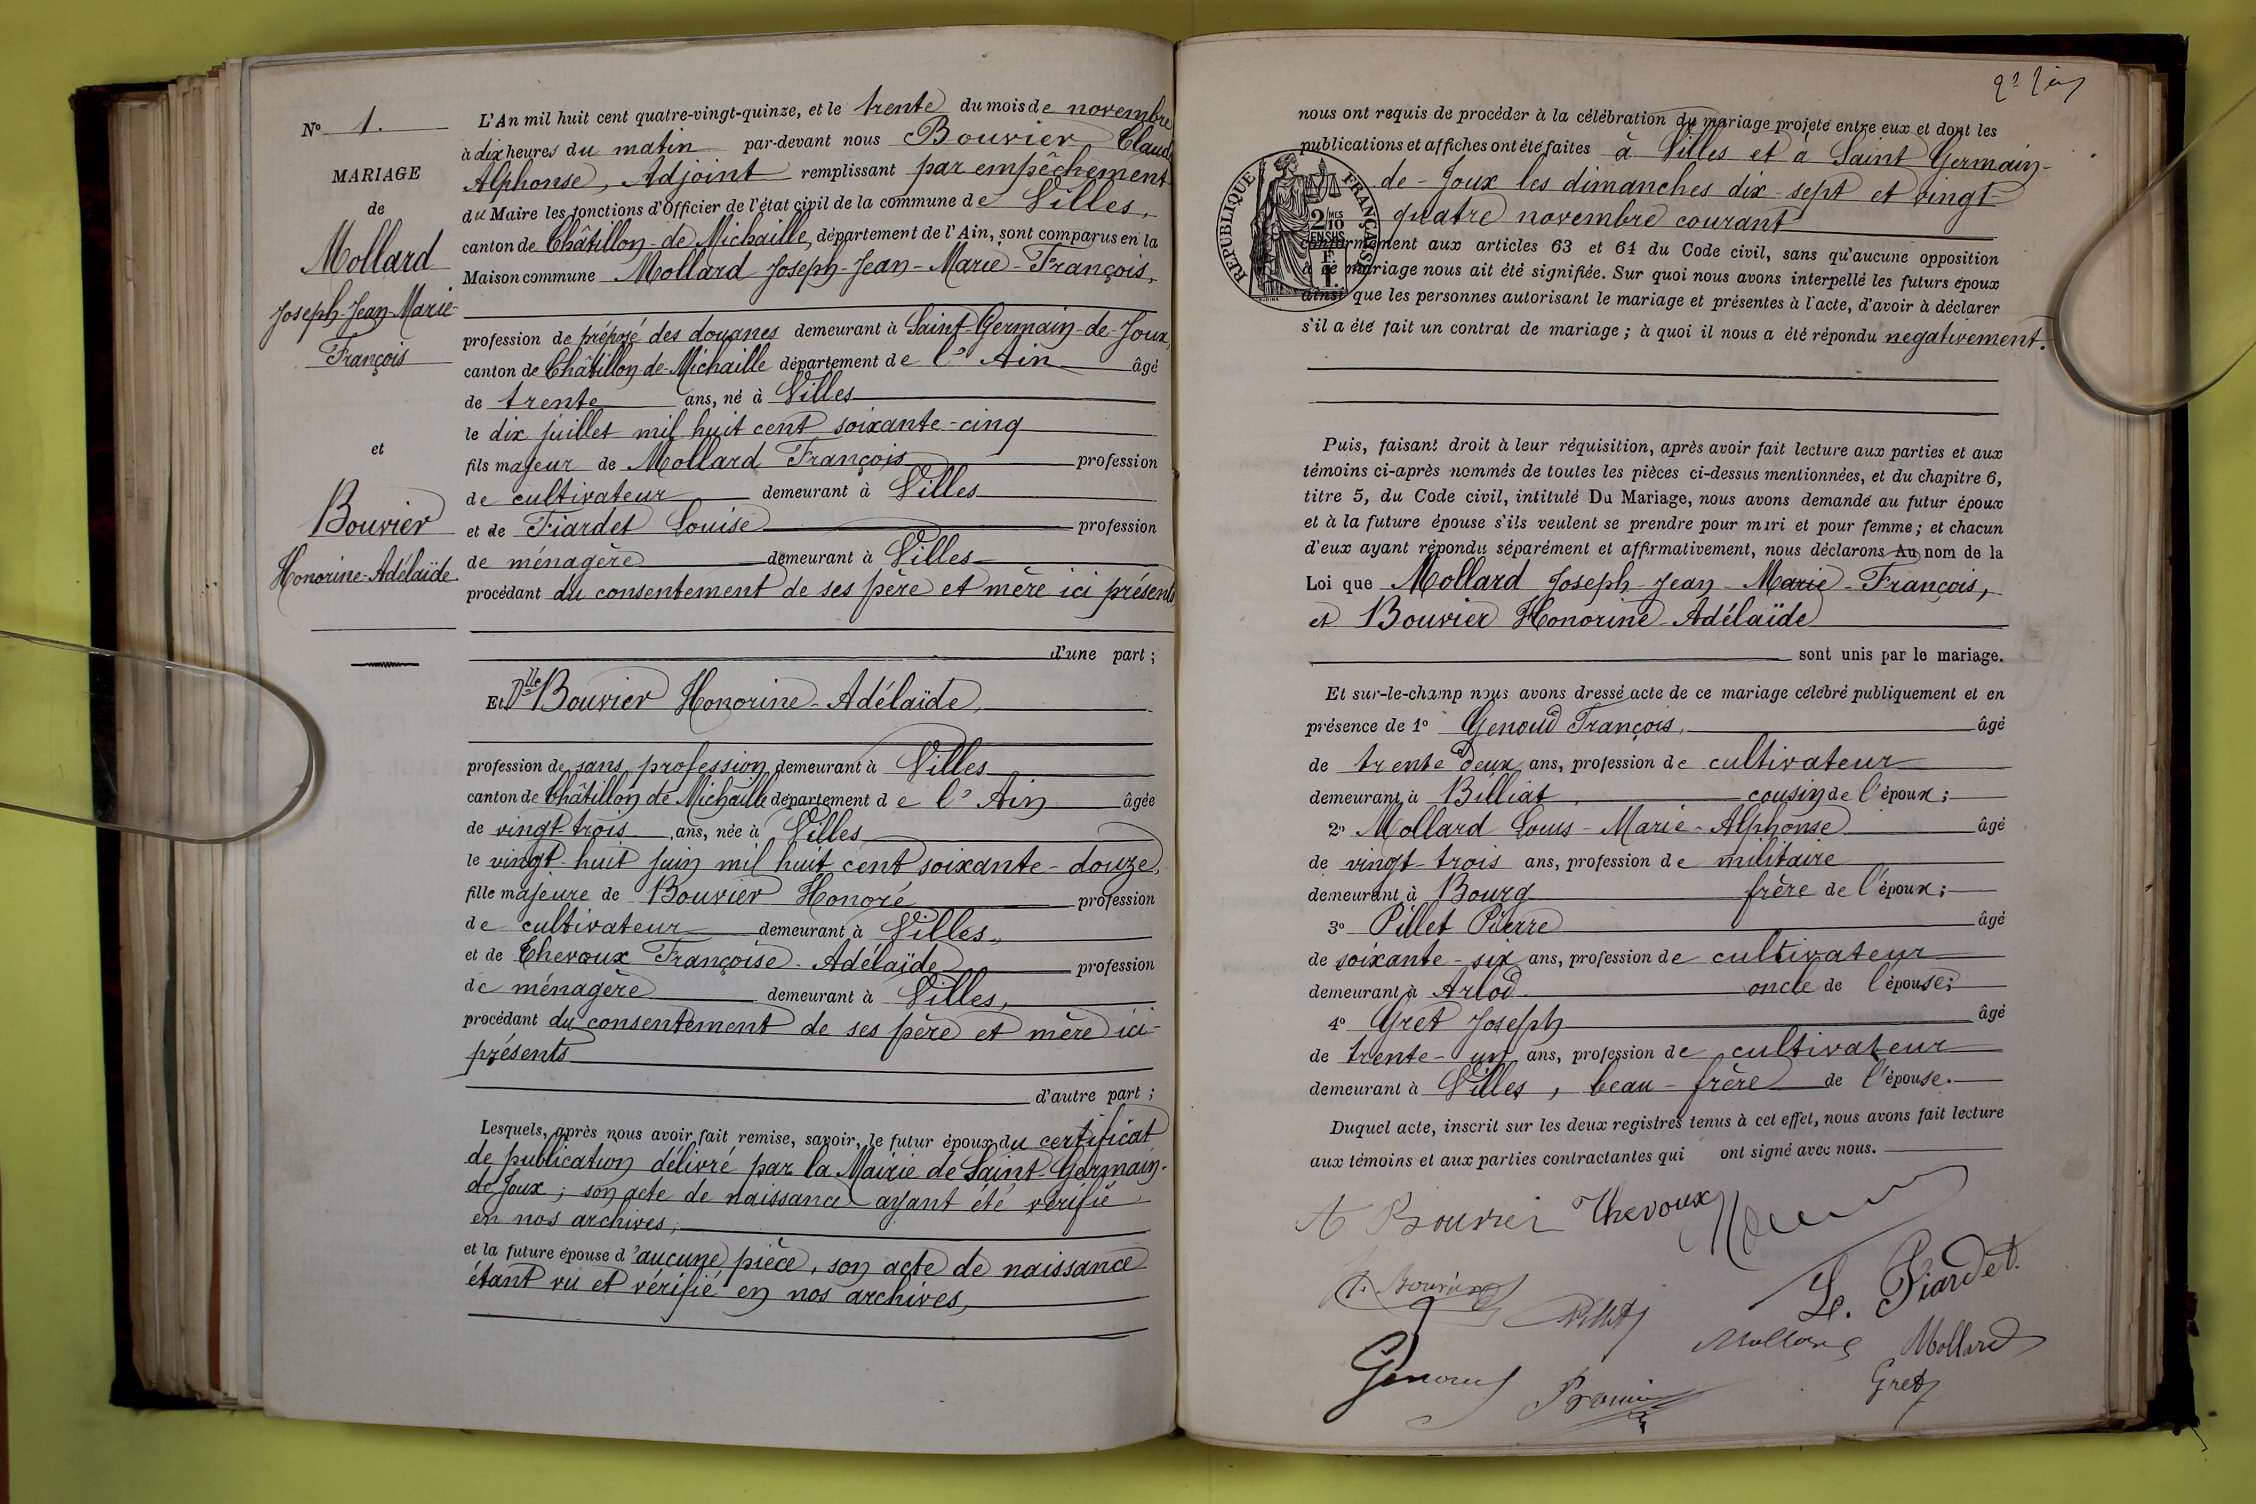 N° 1.
MARIAGE
de
Mollard
Joseph-Jean-Marie-
François
et
Bouvier
Honorine-Adélaïde.
L'An mil huit cent quatre-vingt-quinze, et le trente du mois de novembre
à dix heures du matin par-devant nous Bouvier Claude
Alphonse, Adjoint remplissant par empêchement
du Maire les fonctions d'Officier de l'état civil de la commune de Villes,
canton de Châtillon-de-Michaille, département de l'Ain, sont comparus en la
Maison commune Mollard Joseph-Jean-Marie-François,
profession de préposé des douanes demeurant à Saint-Germain-de-Joux,
canton de Châtillon de Michaille département de l'Ain âgé
de trente ans, né à Villes
le dix juillet mil huit cent soixante-cinq
fils majeur de Mollard François profession
de cultivateur demeurant à Villes
et de Fiardet Louise profession
de ménagère demeurant à Villes
procédant du consentement de ses père et mère ici présents
d'une part ;
Et Dlle Bouvier Honorine-Adélaïde,
profession de sans profession demeurant à Villes
canton de Châtillon de Michaille département de l'Ain âgée
de vingt-trois ans, née à Villes
le vingt-huit juin mil huit cent soixante-douze,
fille majeure de Bouvier Honoré profession
de cultivateur demeurant à Villes,
et de Thevoux Françoise-Adélaïde profession
de ménagère demeurant à Villes,
procédant du consentement de ses père et mère ici-
présents
d'autre part ;
Lesquels, après nous avoir fait remise, savoir, le futur époux du certificat
de publication délivré par la Mairie de Saint-Germain-
de Joux ; son acte de naissance ayant été vérifié
en nos archives,
et la future épouse d'aucune pièce, son acte de naissance
étant vu et vérifié en nos archives,
nous ont requis de procéder à la célébration du mariage projeté entre eux et dont les
publications et affiches ont été faites à Villes et à Saint Germain-
de-Joux les dimanches dix-sept et vingt-
quatre novembre courant
RÉPUBLIQUE FRANÇAISE
2/10MES
EN SUS
1 F.
conformément aux articles 63 et 64 du Code civil, sans qu'aucune opposition
à ce mariage nous ait été signifiée. Sur quoi nous avons interpellé les futurs époux
ainsi que les personnes autorisant le mariage et présentes à l'acte, d'avoir à déclarer
s'il a été fait un contrat de mariage ; à quoi il nous a été répondu negativement.
Puis, faisant droit à leur réquisition, après avoir fait lecture aux parties et aux
témoins ci-après nommés de toutes les pièces ci-dessus mentionnées, et du chapitre 6,
titre 5, du Code civil, intitulé Du Mariage, nous avons demandé au futur époux
et à la future épouse s'ils veulent se prendre pour mari et pour femme ; et chacun
d'eux ayant répondu séparément et affirmativement, nous déclarons Au nom de la
Loi que Mollard Joseph-Jean-Marie-François,
et Bouvier Honorine-Adélaïde
sont unis par le mariage.
Et sur-le-champ nous avons dressé acte de ce mariage célébré publiquement et en
présence de 1° Genoud François, âgé
de trente deux ans, profession de cultivateur
demeurant à Billiat, cousin de l'époux ;
2° Mollard Louis-Marie-Alphonse âgé
de vingt-trois ans, profession de militaire
demeurant à Bourg frère de l'époux ;
3° Pillet Pierre âgé
de soixante-six ans, profession de cultivateur
demeurant à Arlod oncle de l'épouse ;
4° Gret Joseph âgé
de trente-un ans, profession de cultivateur
demeurant à Villes, beau-frère de l'épouse.
Duquel acte, inscrit sur les deux registres tenus à cet effet, nous avons fait lecture
aux témoins et aux parties contractantes qui ont signé avec nous.
A Bouvier Thevoux
Bouvier
Pillet
L. Fiardet
Mollard Mollard
Genoud
Gret